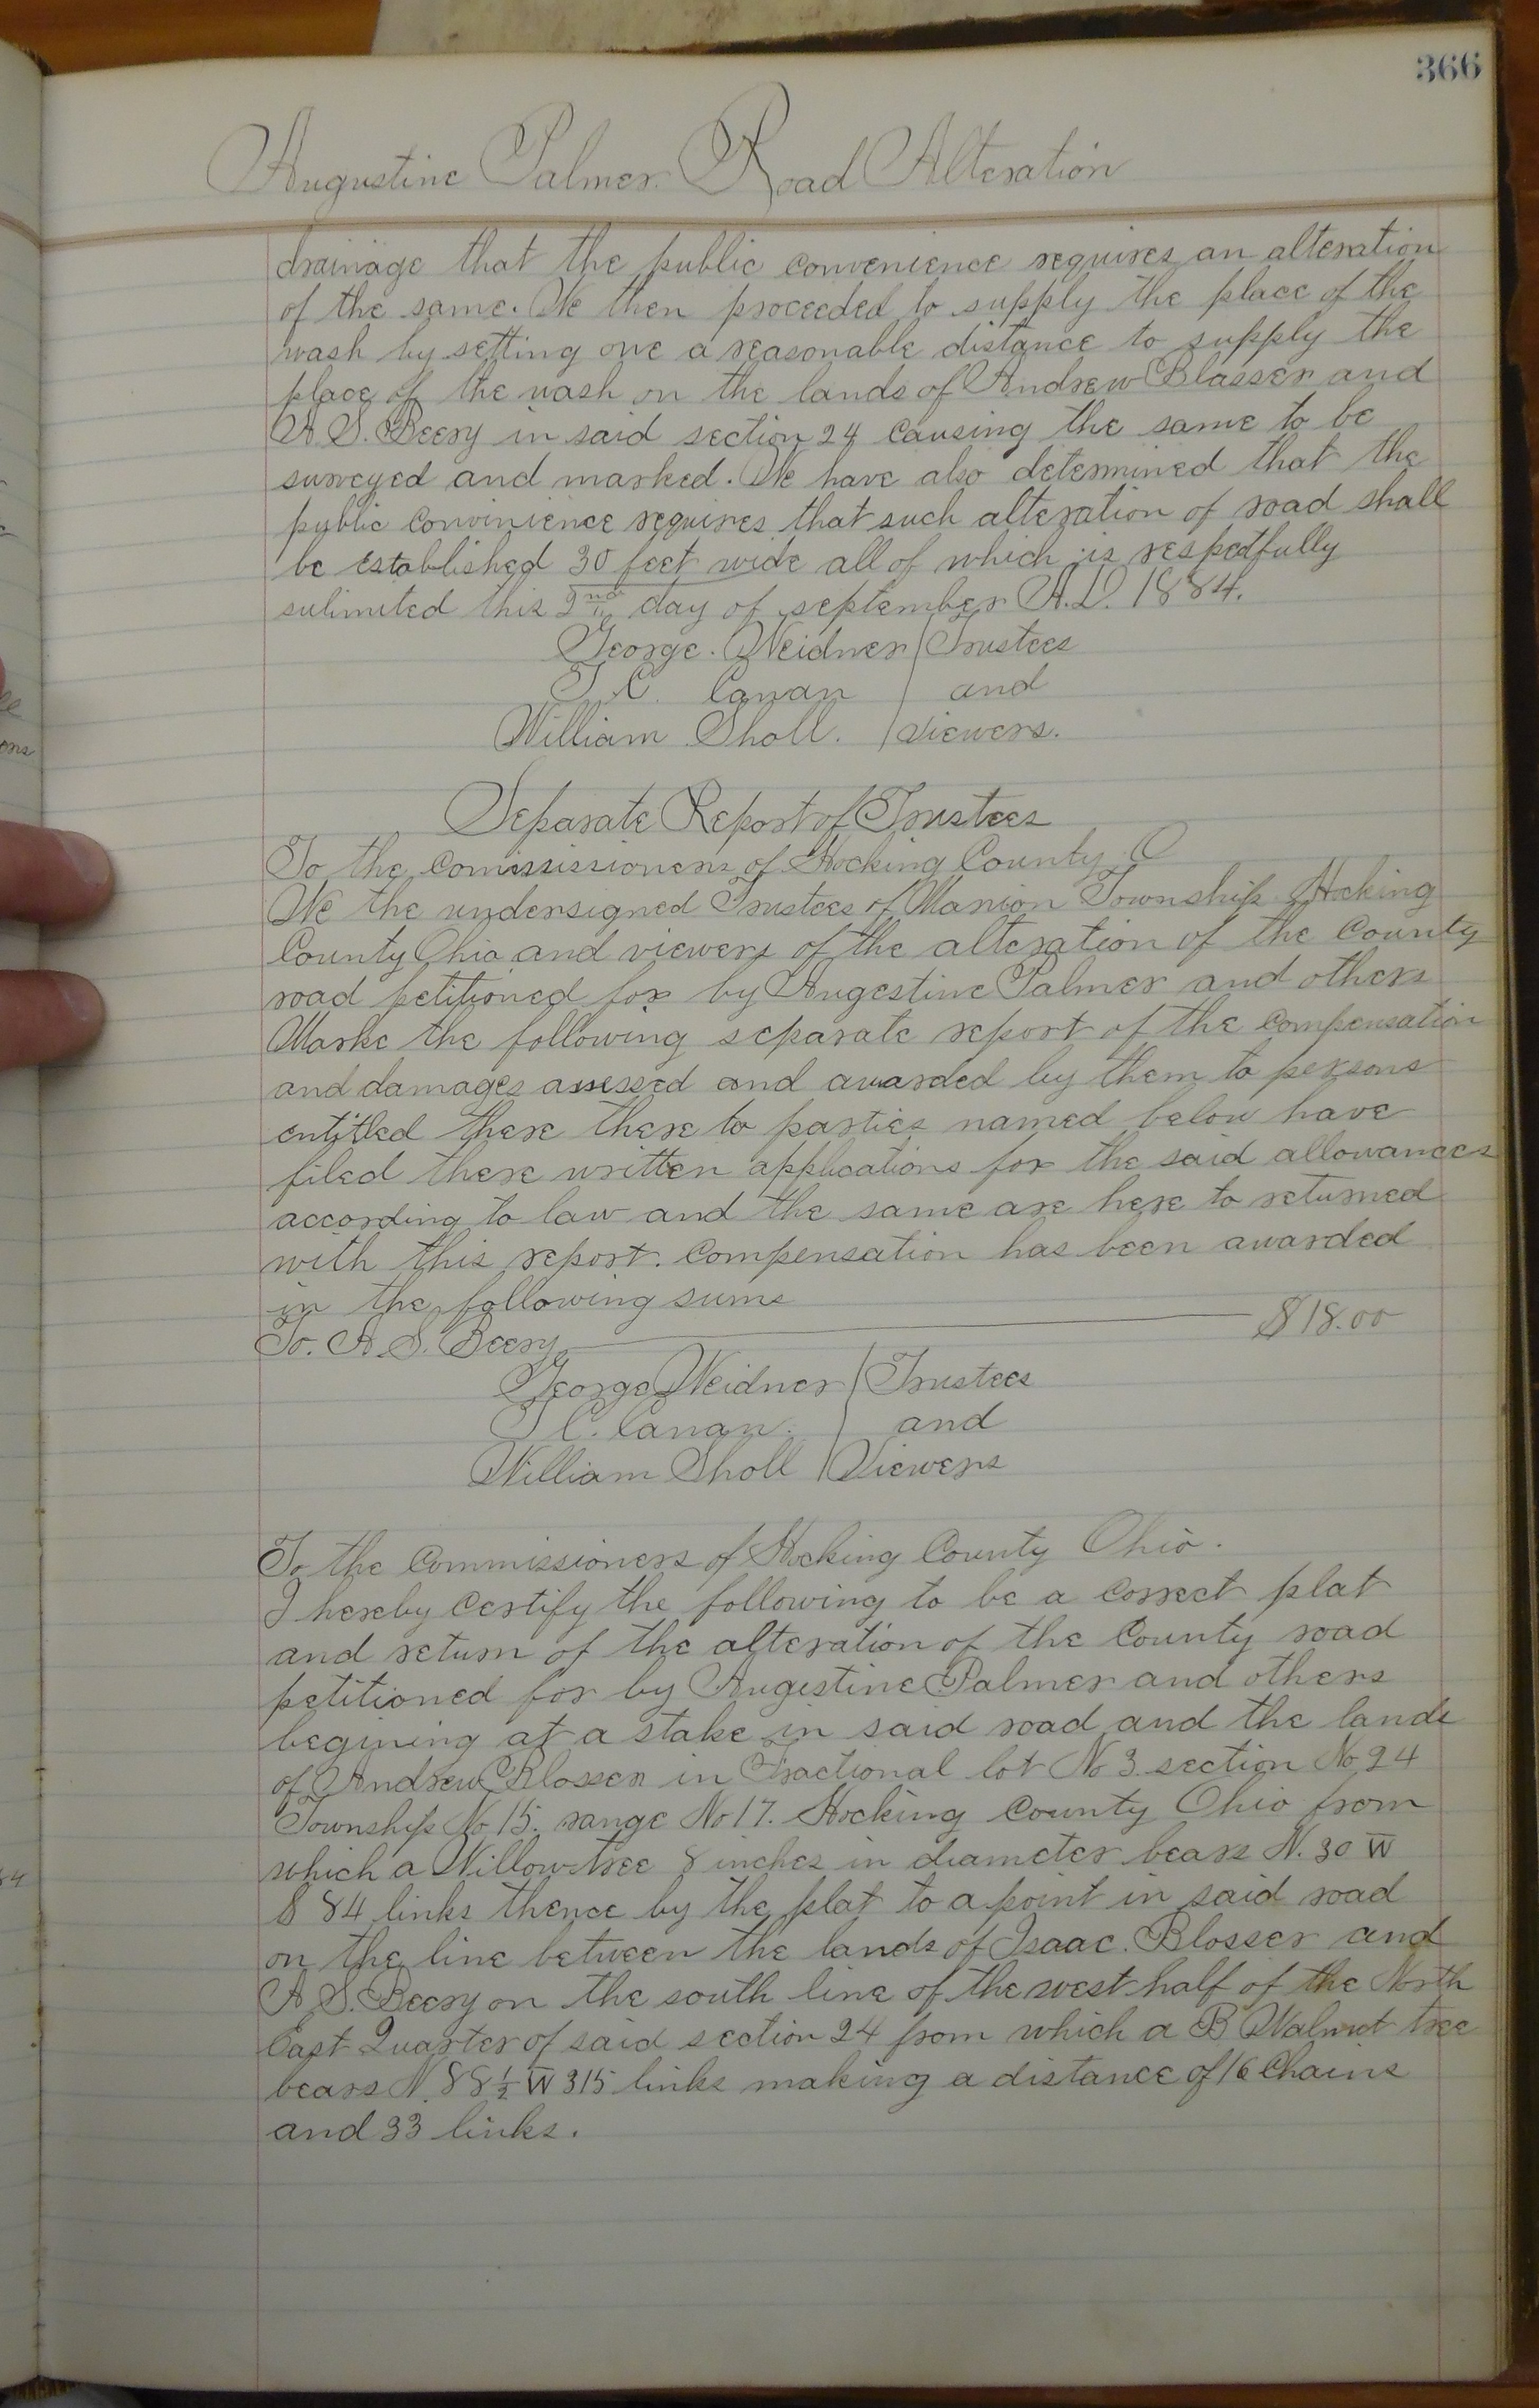 366
Augustine Palmer Road Alteration
drainage that the public convenience requires an alteration
of the same. We then proceeded to supply the place of the
wash by setting one a reasonable distance to supply the
place of the wash on the lands of Andrew Blasser and
A S. Beery in said section 24 causing the same to be
surveyed and marked. We have also determined that the
public convinience requires that such alteration of road shall
be established 30 feet wide all of which is respectfully
sulimited this 2nd day of september A.D. 1884.
George. Weidner Trustees
T. C. Canan and
William Sholl. viewers.
Separate Report of Trustees
To the Comississioners of Hocking County O
We the undersigned Trustees of Marion Township Hocking
County Ohio and viewers of the alteration of the County
road petitioned for by Augestine Palmer and others
Marke the following separate report of the compensation
and damages assessed and awarded by them to persons
entitled there there to parties named below have
filed there written applications for the said allowances
according to law and the same are here to returned
with this report. Compensation has been awarded
in the following sums
To. A. S. Beery $18.00
George Weidner Trustees
T C. Canan. and
William Sholl Viewers
To the Commissioners of Hocking County Ohio.
I hereby certify the following to be a correct plat
and return of the alteration of the County road
petitioned for by Augestine Palmer and others
begining at a stake in said road and the lands
of Andrew Blosser in Fractional lot No 3. section No 24
Township No 15. range No 17. Hocking County Ohio from
which a Willow tree 8 inches in diameter bears N. 30 W
S 84 links thence by the plat to a point in said road
on the line between the lands of Isaac. Blosser and
A S. Beery on the south line of the west half of the North
East Quarter of said section 24 from which a B Walnut tree
bears N. 88 1/2 W 315 links making a distance of 16 Chains
and 33 links.